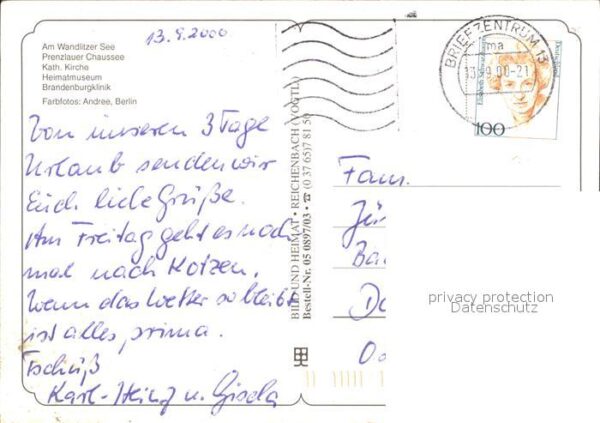 13.9.2000
Am Wandlitzer See
Prenzlauer Chaussee
Kath. Kirche
Heimatmuseum
Brandenburgklinik
Farbfotos: Andree, Berlin
Von unseren 3 Tage
Urlaub senden wir
Euch liebe Grüße.
Am Freitag geht es noch
mal nach Motzen.
Wenn das Wetter so bleibt
ist alles prima.
Tschüß
Karl-Heinz u. Gisela
BILD UND HEIMAT • REICHENBACH (VOGTL)
Bestell-Nr. 05 0897/03 • ☎ (0 37 65) 7 81 50
BRIEFZENTRUM 13
ma
13.9.00-21
Deutschland
100
Fam.
privacy protection
Datenschutz